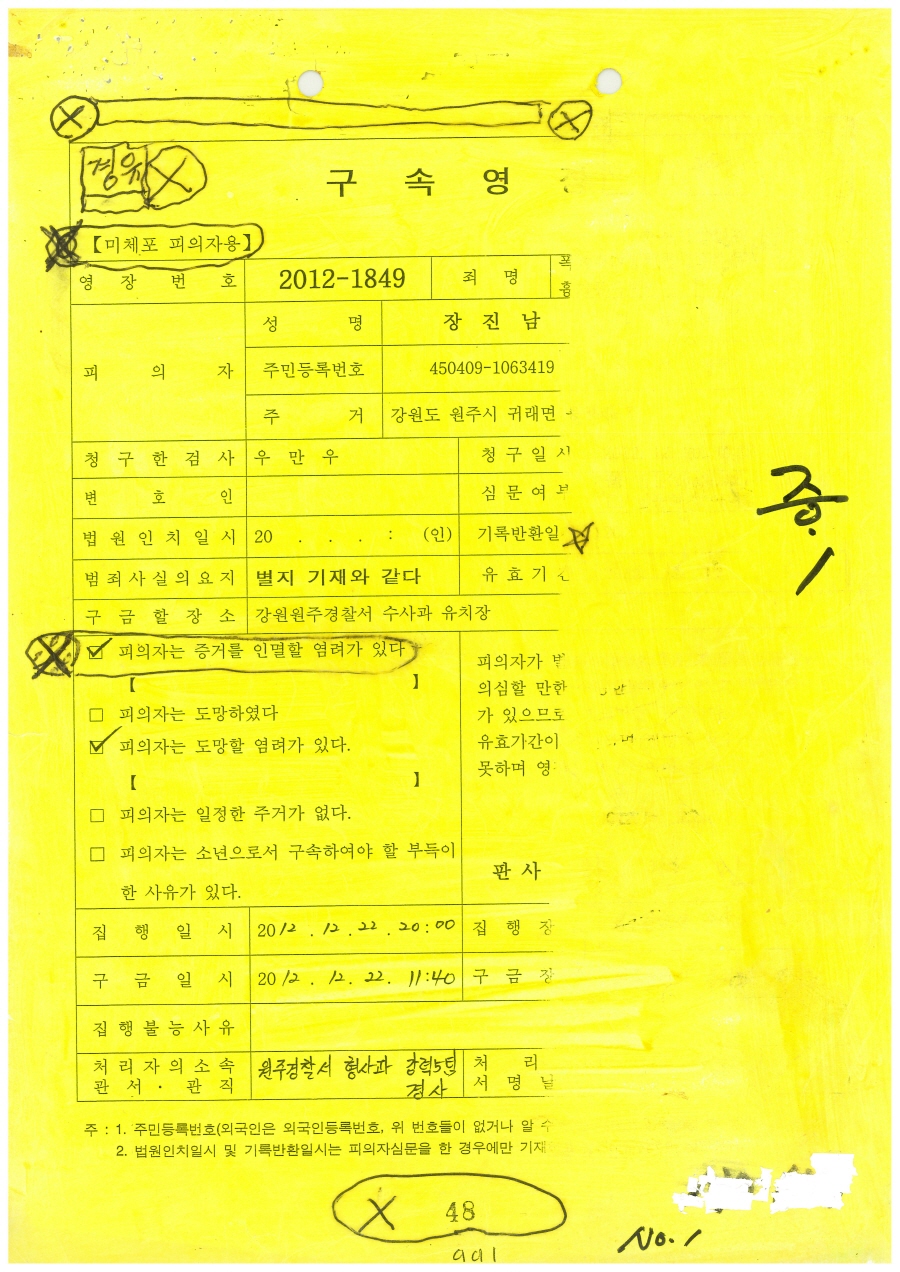 경유
구 속 영
【미체포 피의자용】
영 장 번 호 2012-1849 죄 명 폭
피 의 자 성 명 장 진 남
주민등록번호 450409-1063419
주 거 강원도 원주시 귀래면
청 구 한 검 사 우 만 우 청 구 일 시
변 호 인 심 문 여 부
법 원 인 치 일 시 20 . . . : (인) 기록반환일
범 죄 사 실 의 요 지 별지 기재와 같다 유 효 기 간
구 금 할 장 소 강원원주경찰서 수사과 유치장
☑ 피의자는 증거를 인멸할 염려가 있다
【 】
□ 피의자는 도망하였다
☑ 피의자는 도망할 염려가 있다.
【 】
□ 피의자는 일정한 주거가 없다.
□ 피의자는 소년으로서 구속하여야 할 부득이
한 사유가 있다.
피의자가
의심할 만한
가 있으므로
유효기간이
못하며 영
판 사
집 행 일 시 2012 . 12 . 22 . 20 : 00 집 행 장
구 금 일 시 2012 . 12 . 22 . 11:40 구 금 장
집 행 불 능 사 유
처 리 자 의 소 속 원주경찰서 형사과 강력5팀 처 리
관 서 · 관 직 경사 서 명 날
주 : 1. 주민등록번호(외국인은 외국인등록번호, 위 번호들이 없거나 알 수
2. 법원인치일시 및 기록반환일시는 피의자심문을 한 경우에만 기재
증.
1
48
991
No. 1